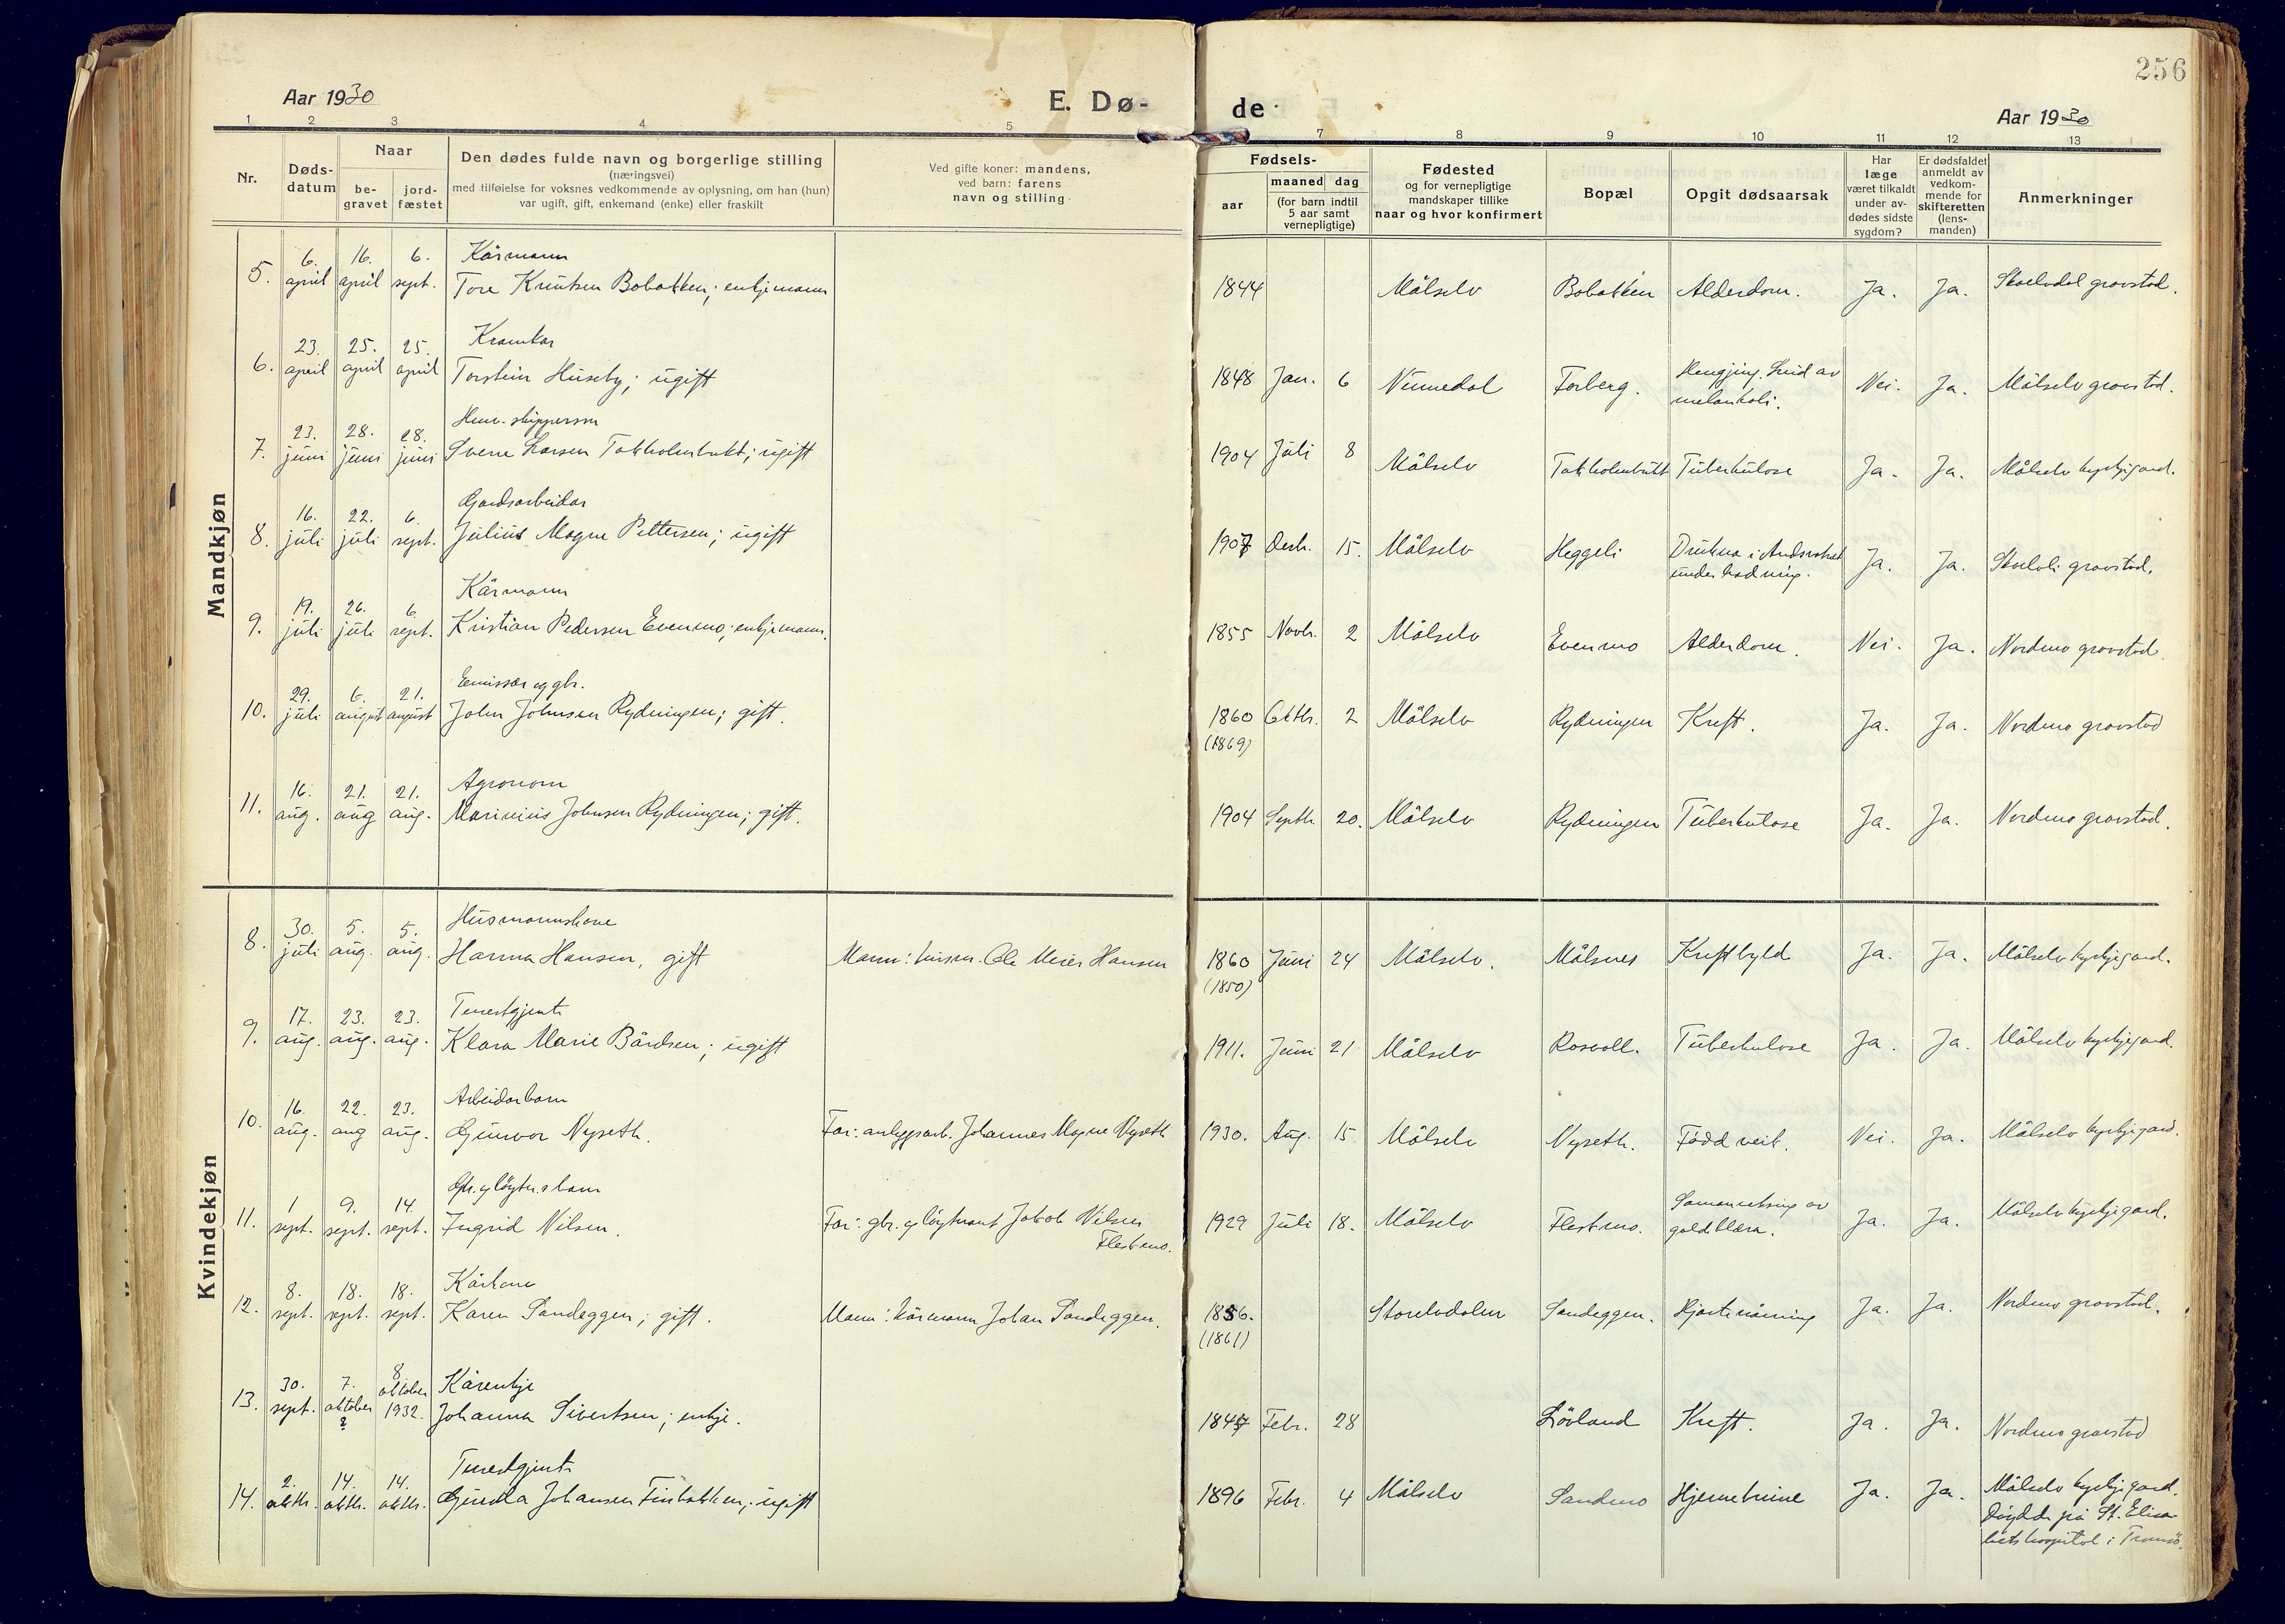 256
Aar 1930
E. Dø-
de
Aar 1930
1 2 3 4 5 7 8 9 10 11 12 13
Nr.
Døds-
datum
Naar
be-
gravet
jord-
fæstet
Den dødes fulde navn og borgerlige stilling
(næringsvei)
med tilføielse for voksnes vedkommende av oplysning, om han (hun)
var ugift, gift, enkemand (enke) eller fraskilt
Ved gifte koner: mandens,
ved barn: farens
navn og stilling
Fødsels-
aar
maaned dag
(for barn indtil
5 aar samt
vernepligtige)
Fødested
og for vernepligtige
mandskaper tillike
naar og hvor konfirmert
Bopæl
Opgit dødsaarsak
Har
læge
været tilkaldt
under av-
dødes sidste
sygdom?
Er dødsfaldet
anmeldt av
vedkom-
mende for
skifteretten
(lens-
manden)
Anmerkninger
Mandkjøn
6. 16. 6. Kårmann
5. april april sept. Tore Knutsen Bobakken; enkjemann 1844 Målselv Bobakken Alderdom. Ja. Ja. gravstad.
23. 25. 25. Kramkar
6. april april april Torstein Huseby; ugift 1848 Jan. 6 Numedal Forberg. Hengjing. Leid av Nei. Ja. Målselv gravstad.
melankoli.
23. 28. 28.
7. juni juni juni Sverre Larsen Takholmbukt; ugift 1904 Juli 8 Målselv Takholmbukt Tuberkulose Ja. Ja. Målselv kyrkjegard.
16. 22. 6. Gardsarbeidar
8. juli juli sept. Julius Magne Pettersen; ugift 1907 Desb. 15. Målselv Heggeli Drukna i Ja. Ja. gravstad.
under badning.
19. 26. 6. Kårmann
9. juli juli sept. Kristian Pedersen Evenmo; enkjemann. 1855 Novb. 2 Målselv Evenmo Alderdom. Nei. Ja. Nordmo gravstad.
29. 6. 21. Emissær og gbr.
10. juli august august John Johnsen Rydningen; gift. 1860 Oktbr. 2 Målselv Rydningen Kreft. Ja. Ja. Nordmo gravstad
(1869)
16. 21. 21. Agronom
11. aug. aug aug. Marinius Johnsen Rydningen; gift. 1904 Septb. 20. Målselv Rydningen Tuberkulose Ja. Ja. Nordmo gravstad.
Kvindekjøn
30. 5. 5. Husmannskone
8. juli aug. aug. Hanna Hansen, gift Mann: husm. Ole Meier Hansen 1860 Juni 24 Målselv. Målsnes Kreftbyld Ja. Ja. Målselv kyrkjegard.
(1850)
17. 23. 23. Tenestgjente
9. aug. aug. aug. Klara Marie Bårdsen; ugift 1911. Juni 21 Målselv Rosvoll. Tuberkulose Ja. Ja. Målselv kyrkjegard.
16. 22. 23. Arbeidarbarn
10. aug. aug aug. Gunvor Nyseth. Far: anleggsarb. Johannes Magne Nyseth 1930. Aug. 15 Målselv Nyseth. Fødd veik. Nei. Ja. Målselv kyrkjegard.
1 9. 14. Gbr. og løytn.s barn
11. sept. sept. sept. Ingrid Nilsen. Far: gbr. og løytnant Jakob Nilsen 1929 Juli 18. Målselv Fleskmo. Samanveksing av Ja. Ja. Målselv kyrkjegard.
Fleskmo. galdeblæra.
8. 18. 18. Kårkone
12. sept. sept. sept. Karen Sandeggen; gift. Mann: kårmann Johan Sandeggen. 1856. Storelvdalen Sandeggen. Ja. Ja. Nordmo gravstad.
(1861)
30. 7. 8. Kårenkje
13. sept. oktober oktober Johanna Sivertsen; enkje. 1847 Febr. 28 Løvland Kreft. Ja. Ja. Nordmo gravstad
? 1932.
2. 14. 14. Tenestgjente
14. oktbr. oktbr. oktbr. Gunda Johansen Finbakken; ugift 1896 Febr. 4 Målselv Sandmo Ja. Ja. Målselv kyrkjegard.
Døydde på St. Elisa-
betshospital i Tromsø.